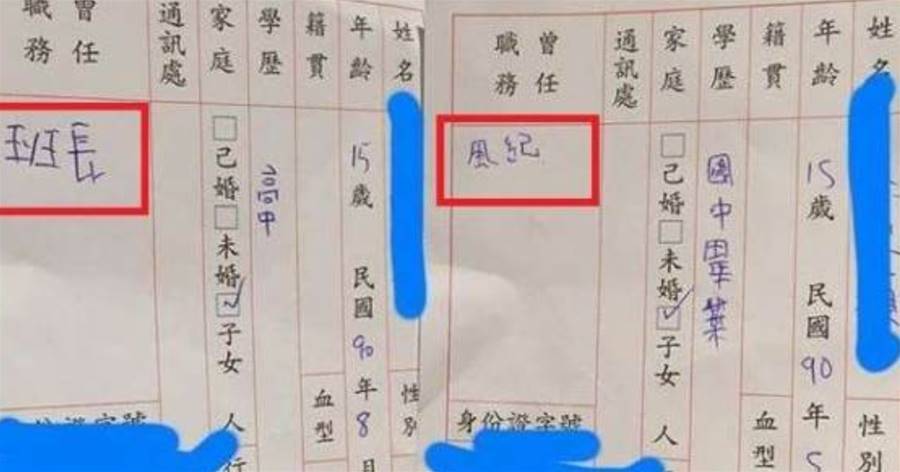 姓名
年齡 15歲 民國90年8月
性別
籍貫
血型
學歷 高中
家庭 □已婚□未婚☑子女 人
通訊處
曾任職務
班長
身份證字號
姓名
年齡 15歲 民國90年5
性別
籍貫
血型
學歷 國中畢業
家庭 □已婚□未婚☑子女 人
通訊處
曾任職務
風紀
身份證字號